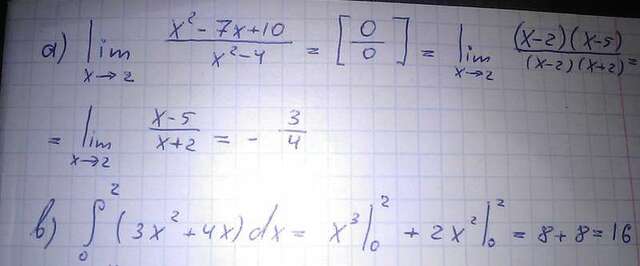 а) lim x→2 (x² - 7x + 10)/(x² - 4) = [0/0] = lim x→2 ((x-2)(x-5))/((x-2)(x+2)) =
= lim x→2 (x-5)/(x+2) = - 3/4
в) ∫₀² (3x² + 4x) dx = x³|₀² + 2x²|₀² = 8 + 8 = 16